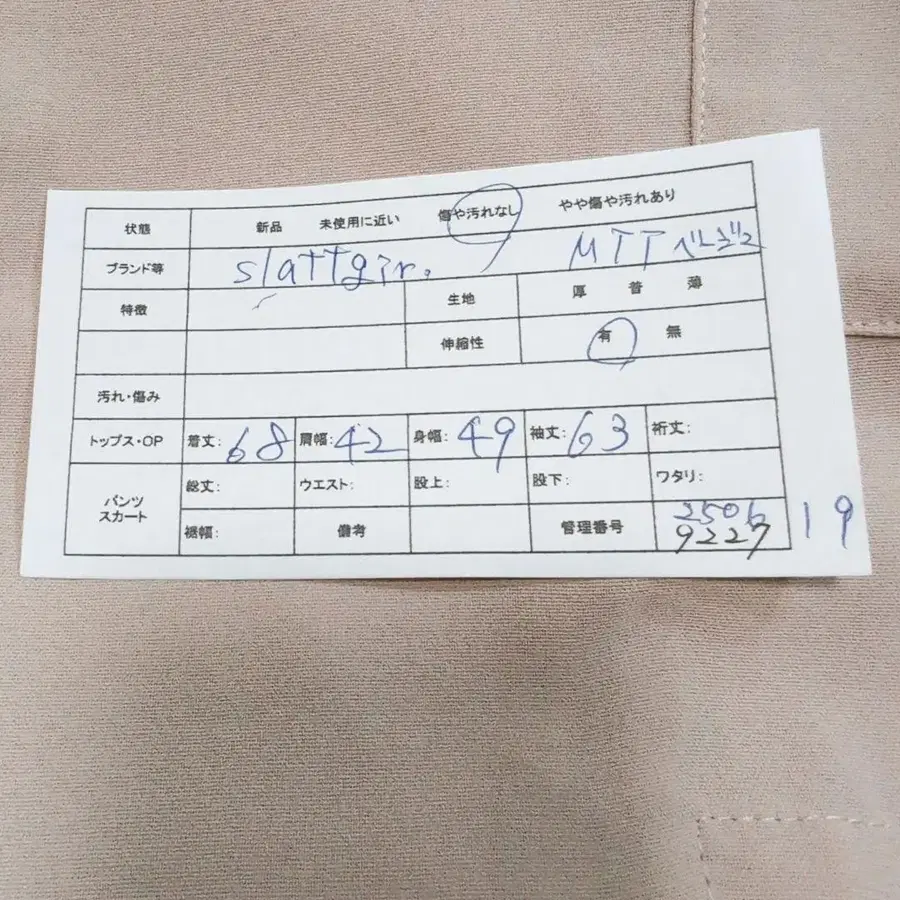 状態 新品 未使用に近い 傷や汚れなし やや傷や汚れあり
ブランド等 slattgir. MTT ベージュ
特徴 生地 厚 普 薄
伸縮性 有 無
汚れ・傷み
トップス・OP 着丈: 68 肩幅: 42 身幅: 49 袖丈: 63 裄丈:
パンツ スカート 総丈: ウエスト: 股上: 股下: ワタリ:
裾幅: 備考 管理番号 2506
9227 19